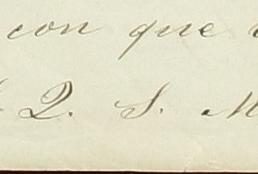 con que
Q. S. M